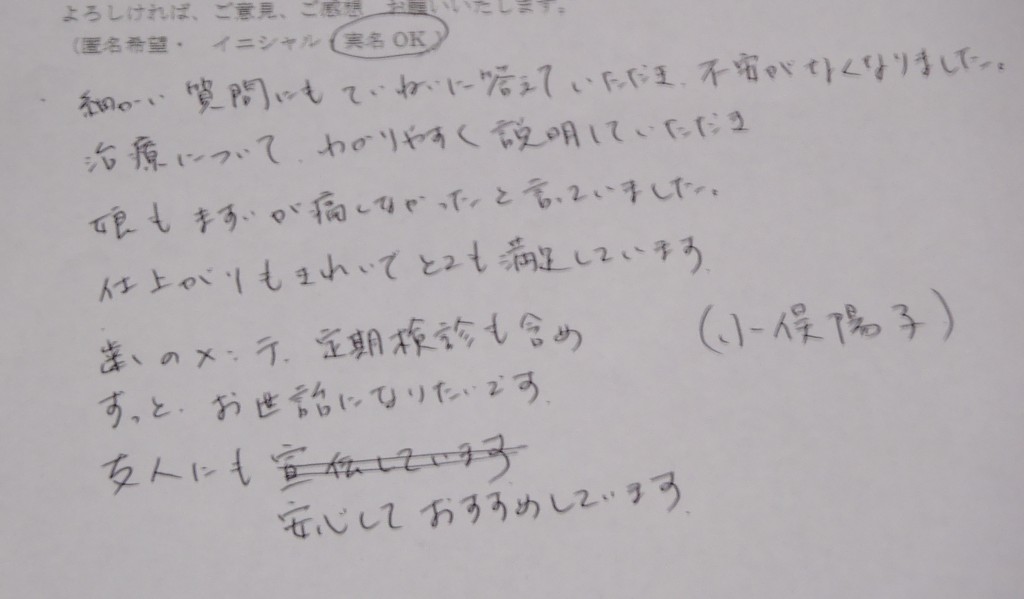 よろしければ、ご意見、ご感想 お願いいたします。
（匿名希望・ イニシャル 実名 OK）
細かい質問にもていねいに答えていただき、不安がなくなりました。
治療について、わかりやすく説明していただき
娘もますいが痛くなかったと言っていました。
仕上がりもきれいでとても満足しています。
歯のメンテ、定期検診も含め
ずっと、お世話になりたいです。
（小俣陽子）
友人にも 宣伝しています
安心しておすすめしています。